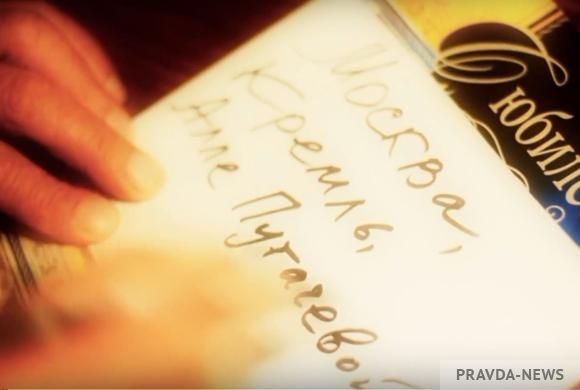 Москва,
Кремль,
Алле Пугачевой
С юбиле
PRAVDA-NEWS